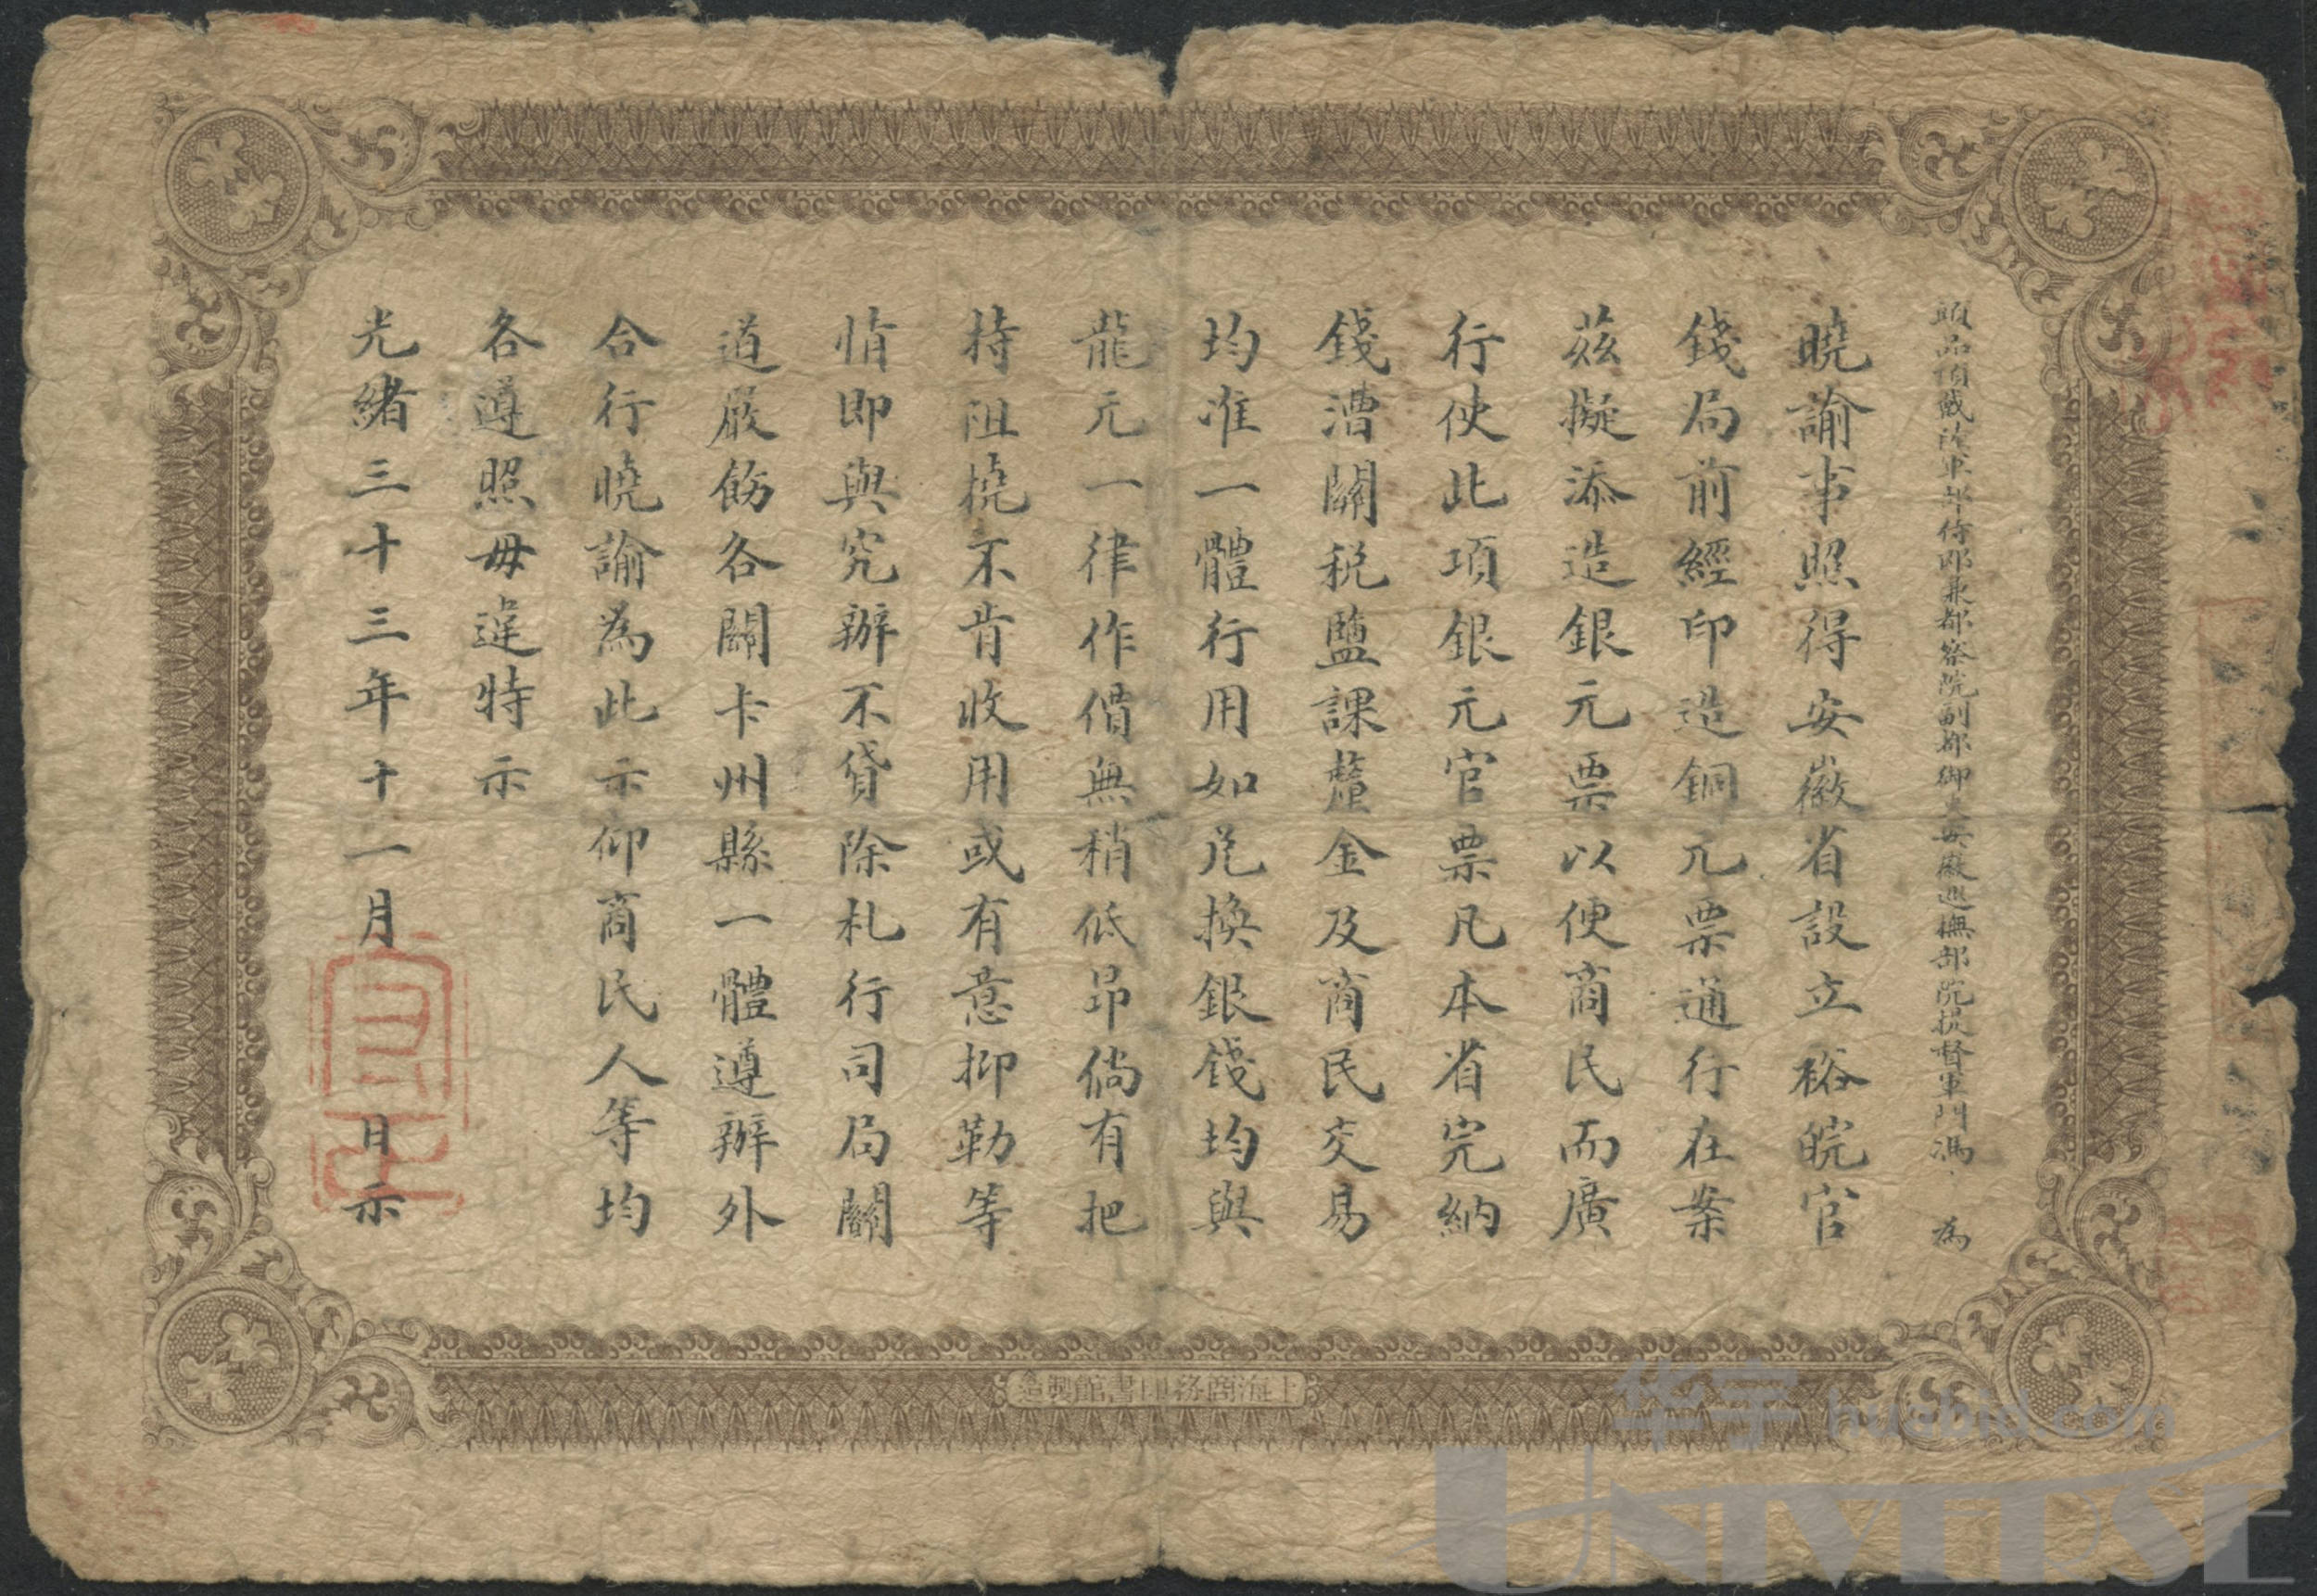 頭品頂戴陸軍部侍郎兼都察院副都御史安徽巡撫部院提督軍門馮 為
曉諭事照得安徽省設立裕皖官
錢局前經印造銅元票通行在案
茲擬添造銀元票以便商民而廣
行使此項銀元官票凡本省完納
錢漕關稅鹽課釐金及商民交易
均准一體行用如兌換銀錢均與
龍元一律作價無稍低昂倘有把
持阻撓不肯收用或有意抑勒等
情即與究辦不貸除札行司局關
道嚴飭各關卡州縣一體遵辦外
合行曉諭為此示仰商民人等均
各遵照毋違特示
光緒三十三年十一月 日示
上海商務印書館製造
华宇 huabid.com
UNIVERSE